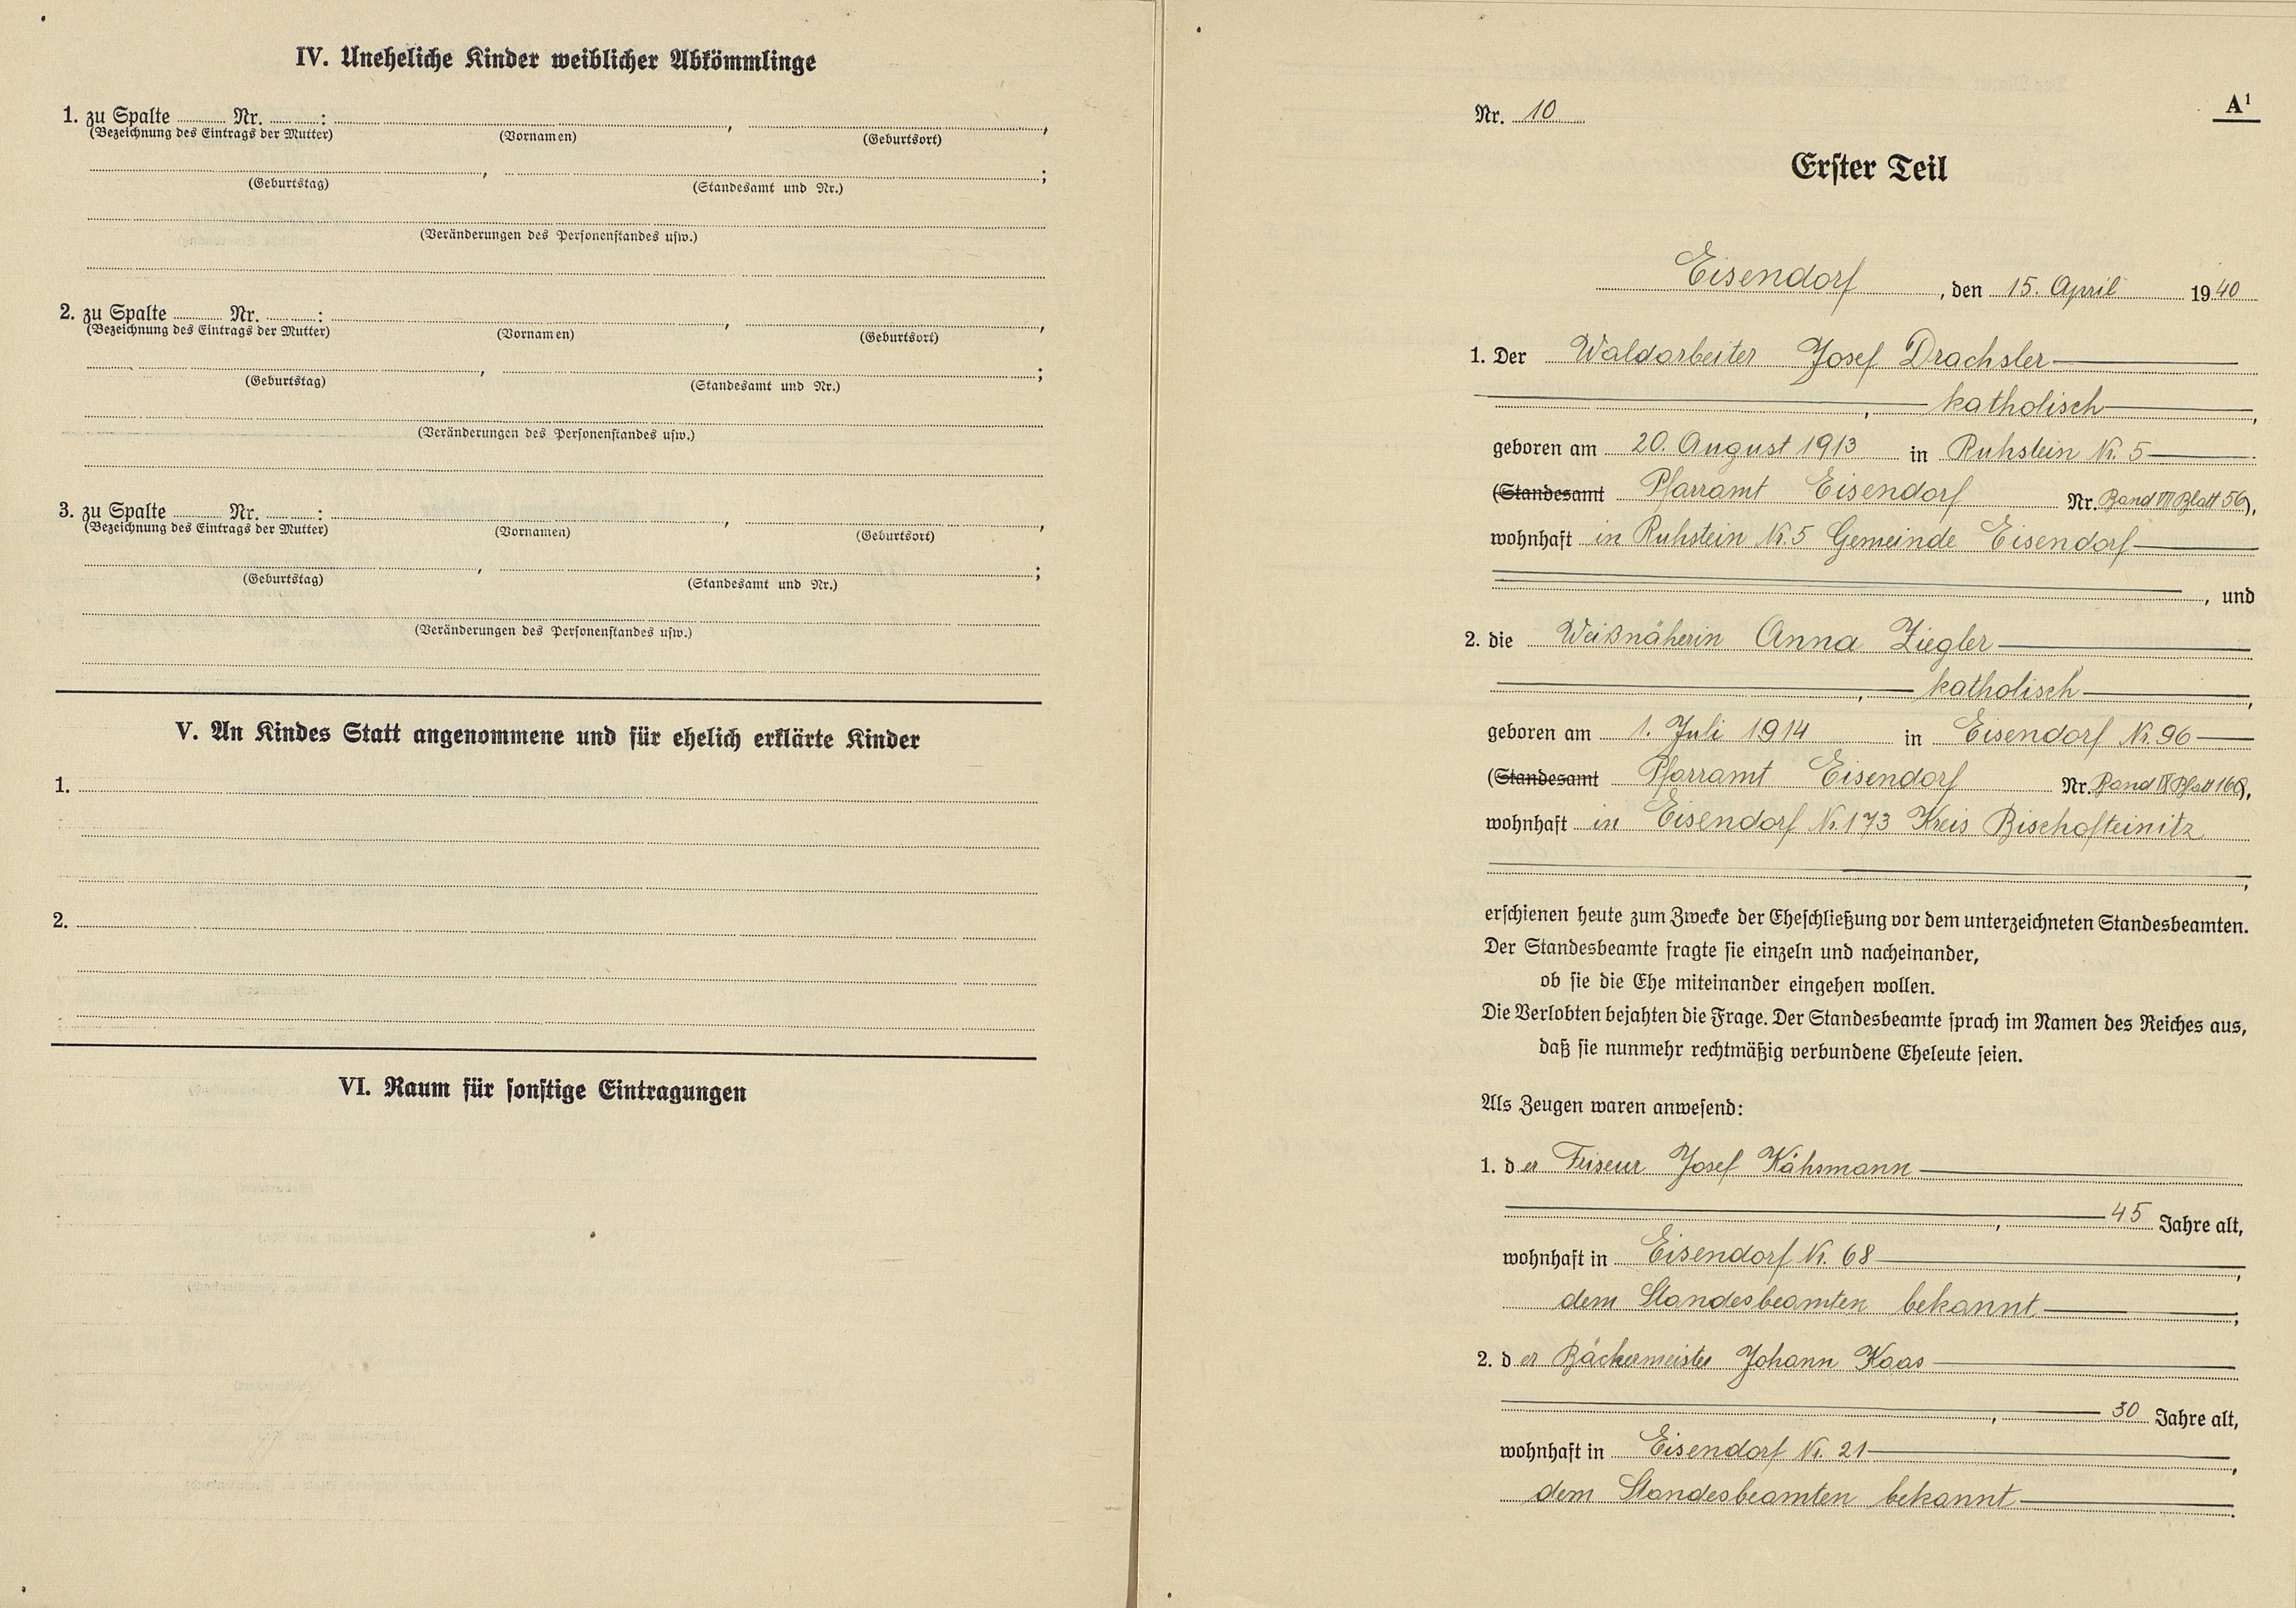 IV. Uneheliche Kinder weiblicher Abkömmlinge
1. zu Spalte ........ Nr. ........: ........, ........,
(Bezeichnung des Eintrags der Mutter) (Vornamen) (Geburtsort)
........, ........;
(Geburtstag) (Standesamt und Nr.)
(Veränderungen des Personenstandes usw.)
2. zu Spalte ........ Nr. ........: ........, ........,
(Bezeichnung des Eintrags der Mutter) (Vornamen) (Geburtsort)
........, ........;
(Geburtstag) (Standesamt und Nr.)
(Veränderungen des Personenstandes usw.)
3. zu Spalte ........ Nr. ........: ........, ........,
(Bezeichnung des Eintrags der Mutter) (Vornamen) (Geburtsort)
........, ........;
(Geburtstag) (Standesamt und Nr.)
(Veränderungen des Personenstandes usw.)
V. An Kindes Statt angenommene und für ehelich erklärte Kinder
1.
2.
VI. Raum für sonstige Eintragungen
A¹
Nr. 10
Erster Teil
Eisendorf, den 15. April 1940
1. Der Waldarbeiter Josef Drachsler
, katholisch,
geboren am 20. August 1913 in Ruhstein Nr. 5
(Standesamt Pfarramt Eisendorf Nr. Band VIII Blatt 56),
wohnhaft in Ruhstein Nr. 5 Gemeinde Eisendorf
, und
2. die Weißnäherin Anna Ziegler
, katholisch,
geboren am 1. Juli 1914 in Eisendorf Nr. 96
(Standesamt Pfarramt Eisendorf Nr. Band IX Blatt 168),
wohnhaft in Eisendorf Nr. 173 Kreis Bischofteinitz
,
erschienen heute zum Zwecke der Eheschließung vor dem unterzeichneten Standesbeamten.
Der Standesbeamte fragte sie einzeln und nacheinander,
ob sie die Ehe miteinander eingehen wollen.
Die Verlobten bejahten die Frage. Der Standesbeamte sprach im Namen des Reiches aus,
daß sie nunmehr rechtmäßig verbundene Eheleute seien.
Als Zeugen waren anwesend:
1. der Friseur Josef Kähsmann
, 45 Jahre alt,
wohnhaft in Eisendorf Nr. 68,
dem Standesbeamten bekannt;
2. der Bäckermeister Johann Kaas
, 30 Jahre alt,
wohnhaft in Eisendorf Nr. 21,
dem Standesbeamten bekannt.